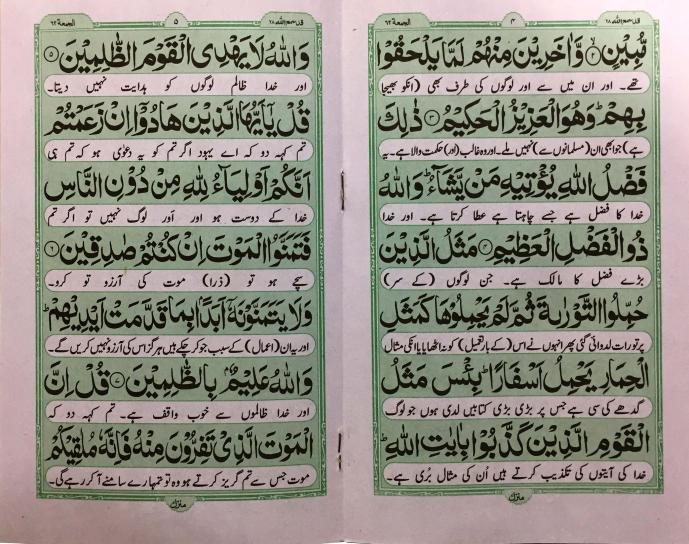 قد سمع الله ٢٨
٤
الجمعة ٦٢
مُّبِيْنٍ ۝٢ وَّاٰخَرِيْنَ مِنْهُمْ لَمَّا يَلْحَقُوْا
تھے۔ اور ان میں سے اور لوگوں کی طرف بھی (انکو بھیجا
بِهِمْ ؕ وَهُوَ الْعَزِيْزُ الْحَكِيْمُ ۝٣ ذٰلِكَ
ہے) جو ابھی ان (مسلمانوں سے) نہیں ملے۔ اور وہ غالب (اور) حکمت والا ہے۔ یہ
فَضْلُ اللّٰهِ يُؤْتِيْهِ مَنْ يَّشَآءُ ؕ وَاللّٰهُ
خدا کا فضل ہے جسے چاہتا ہے عطا کرتا ہے۔ اور خدا
ذُو الْفَضْلِ الْعَظِيْمِ ۝٤ مَثَلُ الَّذِيْنَ
بڑے فضل کا مالک ہے۔ جن لوگوں (کے سر)
حُمِّلُوا التَّوْرٰىةَ ثُمَّ لَمْ يَحْمِلُوْهَا كَمَثَلِ
پر تورات لدوائی گئی پھر انہوں نے اس (کے بار تعمیل) کو نہ اٹھایا انکی مثال
الْحِمَارِ يَحْمِلُ اَسْفَارًا ؕ بِئْسَ مَثَلُ
گدھے کی سی ہے جس پر بڑی بڑی کتابیں لدی ہوں جو لوگ
الْقَوْمِ الَّذِيْنَ كَذَّبُوْا بِاٰيٰتِ اللّٰهِ ؕ
خدا کی آیتوں کی تکذیب کرتے ہیں اُن کی مثال بُری ہے۔
منزل
قد سمع الله ٢٨
٥
الجمعة ٦٢
وَاللّٰهُ لَا يَهْدِى الْقَوْمَ الظّٰلِمِيْنَ ۝٥
اور خدا ظالم لوگوں کو ہدایت نہیں دیتا۔
قُلْ يٰۤاَيُّهَا الَّذِيْنَ هَادُوْۤا اِنْ زَعَمْتُمْ
تم کہہ دو کہ اے یہود اگر تم کو یہ دعوٰی ہو کہ تم ہی
اَنَّكُمْ اَوْلِيَآءُ لِلّٰهِ مِنْ دُوْنِ النَّاسِ
خدا کے دوست ہو اور اَور لوگ نہیں تو اگر تم
فَتَمَنَّوُا الْمَوْتَ اِنْ كُنْتُمْ صٰدِقِيْنَ ۝٦
سچے ہو تو (ذرا) موت کی آرزو تو کرو۔
وَلَا يَتَمَنَّوْنَهٗۤ اَبَدًۢا بِمَا قَدَّمَتْ اَيْدِيْهِمْ ؕ
اور یہ ان (اعمال) کے سبب جو کر چکے ہیں ہرگز اس کی آرزو نہیں کریں گے۔
وَاللّٰهُ عَلِيْمٌۢ بِالظّٰلِمِيْنَ ۝٧ قُلْ اِنَّ
اور خدا ظالموں سے خوب واقف ہے۔ تم کہہ دو کہ
الْمَوْتَ الَّذِىْ تَفِرُّوْنَ مِنْهُ فَاِنَّهٗ مُلٰقِيْكُمْ
موت جس سے تم گریز کرتے ہو وہ تو تمہارے سامنے آ کر رہے گی۔
منزل